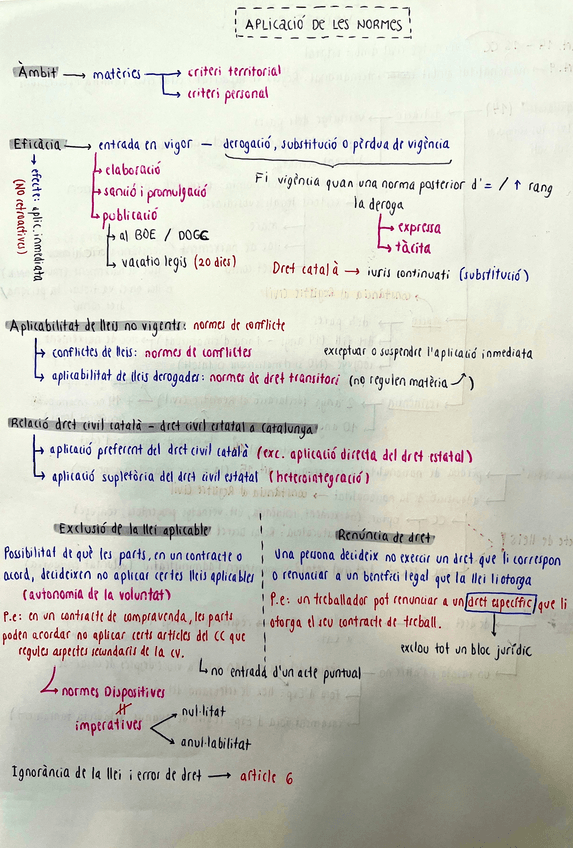 APLICACIÓ DE LES NORMES
Àmbit → matèries → criteri territorial
→ criteri personal
Eficàcia → entrada en vigor — derogació, substitució o pèrdua de vigència
→ elaboració
→ sanció i promulgació
→ publicació
→ al BOE / DOGC
→ vacatio legis (20 dies)
→ efecte: aplic. inmediata
(NO retroactives)
Fi vigència quan una norma posterior d' = / ↑ rang
la deroga
→ expressa
→ tàcita
Dret català → iuris continuati (substitució)
Aplicabilitat de lleis no vigents: normes de conflicte
→ conflictes de lleis: normes de conflictes
exceptuar o suspendre l'aplicació inmediata
→ aplicabilitat de lleis derogades: normes de dret transitori (no regulen matèria ↗)
Relació dret civil català – dret civil estatal a Catalunya
→ aplicació preferent del dret civil català (exc. aplicació directa del dret estatal)
→ aplicació supletòria del dret civil estatal (heterointegració)
Exclusió de la llei aplicable
Possibilitat de què les parts, en un contracte o
acord, decideixen no aplicar certes lleis aplicables
(autonomia de la voluntat)
P.e: en un contracte de compravenda, les parts
poden acordar no aplicar certs articles del CC que
regules aspectes secundaris de la cv.
→ no entrada d'un acte puntual
→ normes Dispositives
≠
imperatives → nul·litat
→ anul·labilitat
Renúncia de dret
Una persona decideix no exercir un dret que li correspon
o renunciar a un benefici legal que la llei li otorga
P.e: un treballador pot renunciar a un dret específic que li
otorga el seu contracte de treball.
↓
exclou tot un bloc jurídic
Ignorància de la llei i error de dret → article 6